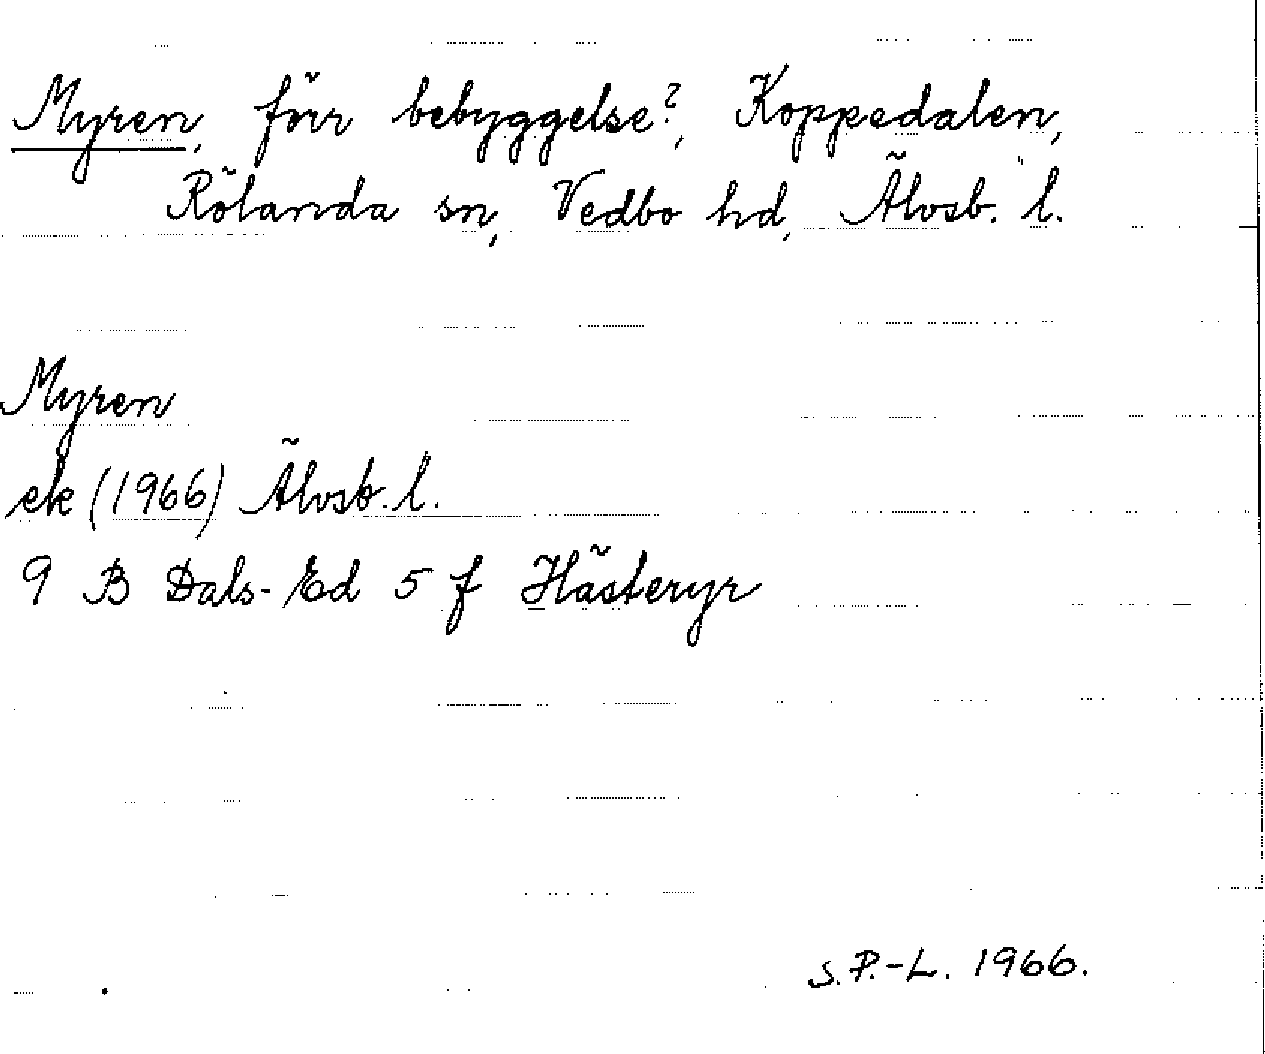 Myren, förr bebyggelse?, Koppedalen,
Rölanda sn, Vedbo hd, Älvsb. l.
Myren
ek (1966) Älvsb. l.
9 B Dals-Ed 5 f Hästeryr
S. P.-L. 1966.